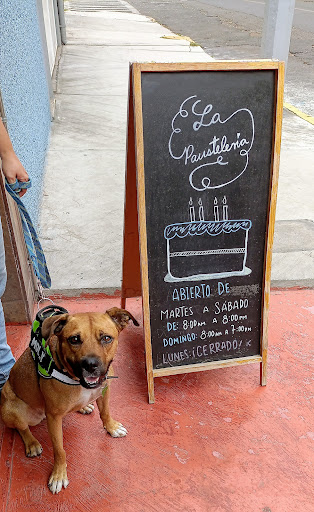 La
Pausteleria
ABIERTO DE
MARTES A SÁBADO
DE: 8:00 AM A 8:00 PM
DOMINGO: 8:00 AM A 7:00
LUNES: ¡CERRADO!